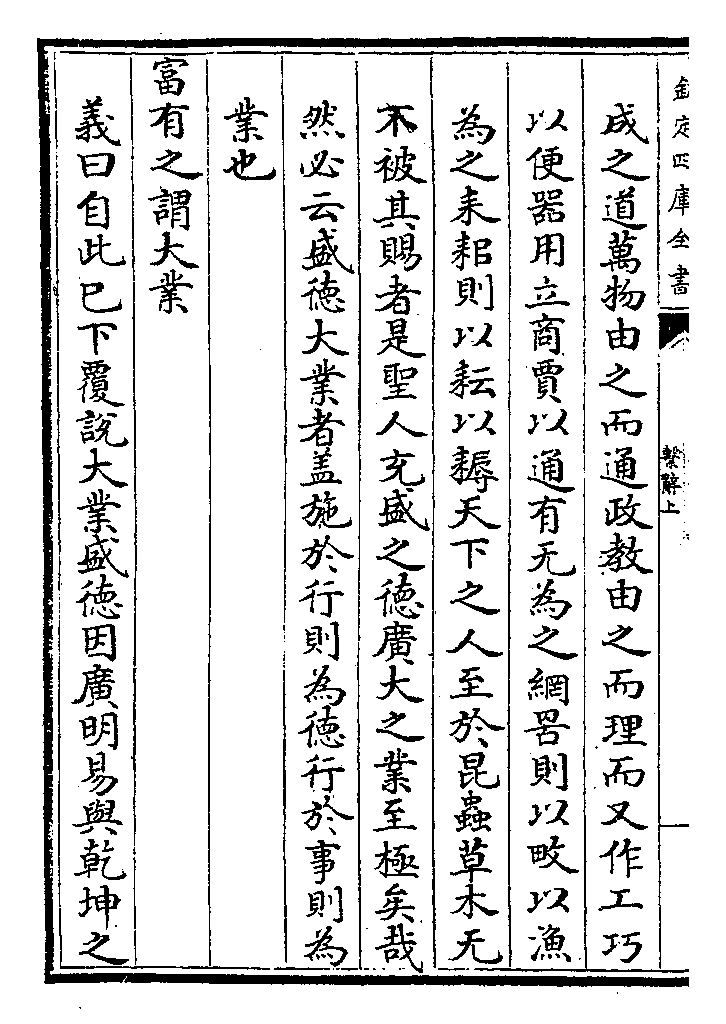 欽定四庫全書
繫辭上
成之道萬物由之而通政教由之而理而又作工巧
以便器用立商賈以通有无為之網罟則以畋以漁
為之耒耜則以耘以耨天下之人至於昆蟲草木无
不被其賜者是聖人充盛之德廣大之業至極矣哉
然必云盛德大業者盖施於行則為德行於事則為
業也
富有之謂大業
義曰自此已下覆説大業盛德因廣明易與乾坤之